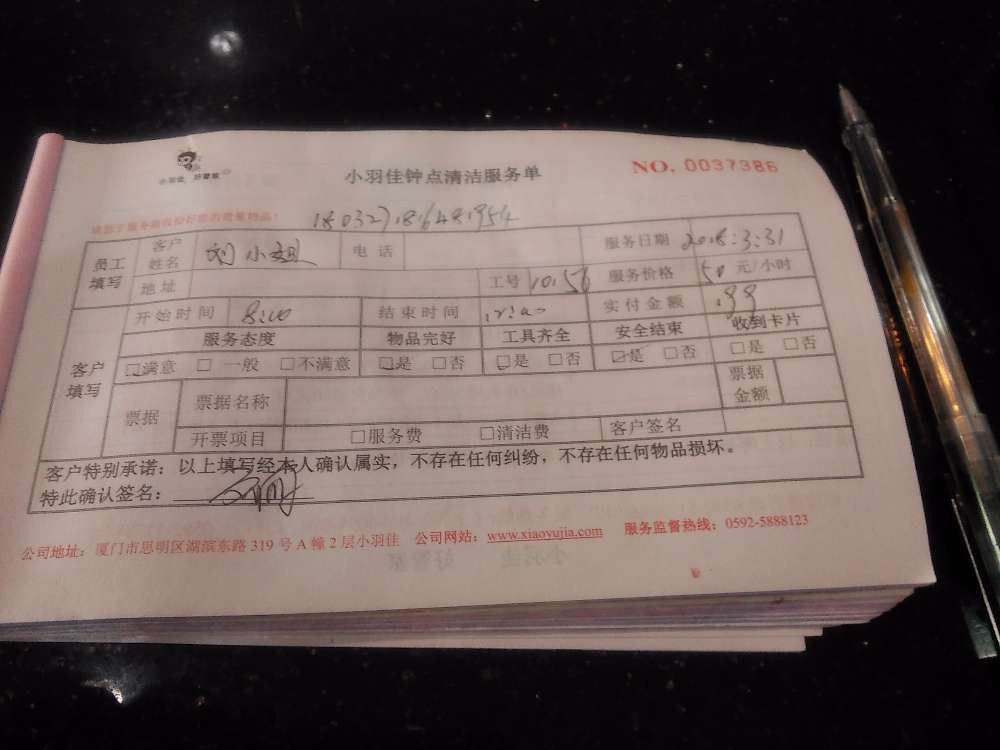 小羽佳 好管家
小羽佳钟点清洁服务单
NO. 0037386
180327186481954
员工填写 客户姓名 刘小姐 电话 服务日期 2018:3:31
地址 工号 1056 服务价格 50 元/小时
开始时间 8:00 结束时间 实付金额
客户填写 服务态度 物品完好 工具齐全 安全结束 收到卡片
□满意 □一般 □不满意 □是 □否 □是 □否 □是 □否 □是 □否
票据 票据名称 票据金额
开票项目 □服务费 □清洁费 客户签名
客户特别承诺：以上填写经本人确认属实，不存在任何纠纷，不存在任何物品损坏。
特此确认签名：
公司地址：厦门市思明区湖滨东路 319 号 A 幢 2 层小羽佳 公司网站：www.xiaoyujia.com 服务监督热线：0592-5888123